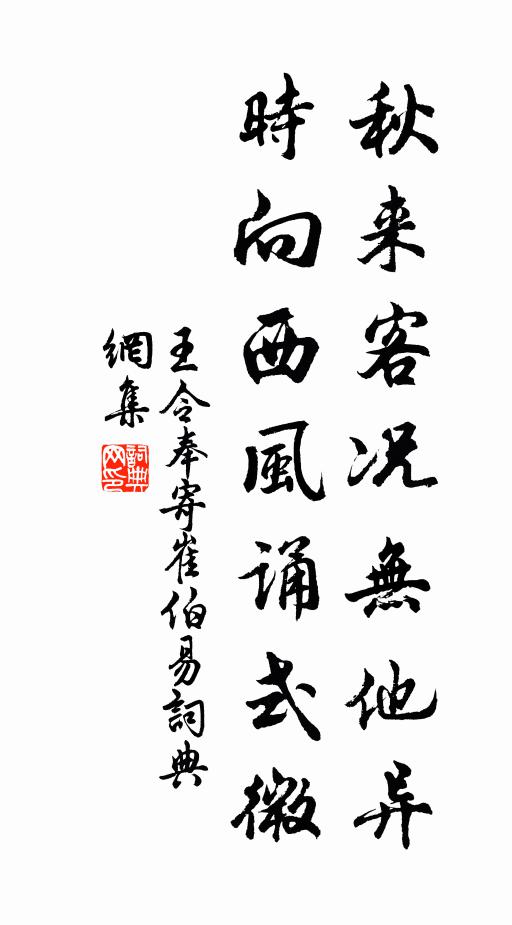 秋来客况無他异
時向西風誦式微
王令奉寄崔伯易詞典
網集
詞典
网印